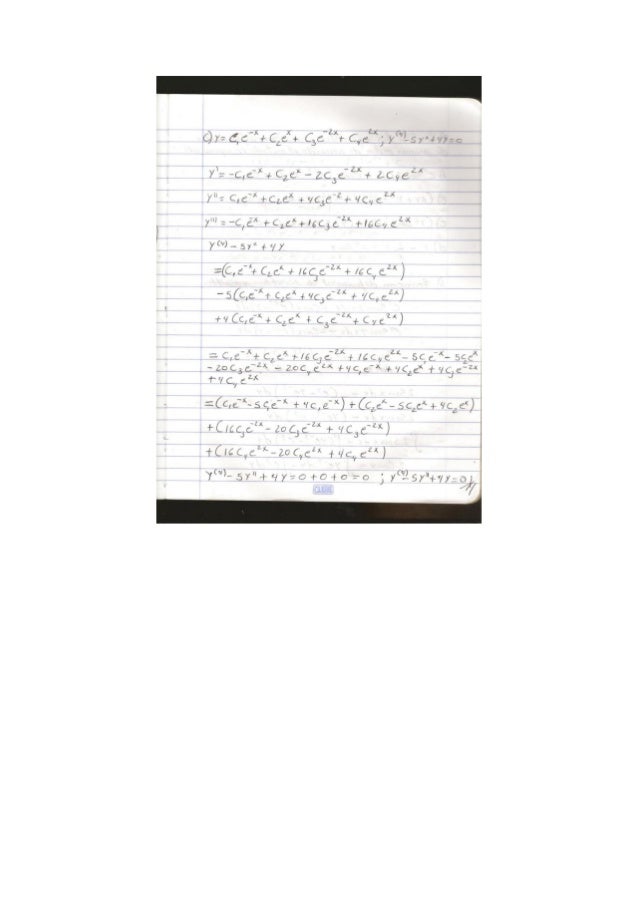 c) y = C₁e⁻ˣ + C₂eˣ + C₃e⁻²ˣ + C₄e²ˣ ; y⁽⁴⁾ - 5y'' + 4y = 0
y' = -C₁e⁻ˣ + C₂eˣ - 2C₃e⁻²ˣ + 2C₄e²ˣ
y'' = C₁e⁻ˣ + C₂eˣ + 4C₃e⁻² + 4C₄e²ˣ
= -C₁e⁻ˣ + C₂eˣ + 16C₃e⁻²ˣ + 16C₄e²ˣ
y⁽⁴⁾ - 5y'' + 4y
= (C₁e⁻ˣ + C₂eˣ + 16C₃e⁻²ˣ + 16C₄e²ˣ)
-5(C₁e⁻ˣ + C₂eˣ + 4C₃e⁻²ˣ + 4C₄e²ˣ)
+4(C₁e⁻ˣ + C₂eˣ + C₃e⁻²ˣ + C₄e²ˣ)
= C₁e⁻ˣ + C₂eˣ + 16C₃e⁻²ˣ + 16C₄e²ˣ - 5C₁e⁻ˣ - 5C₂eˣ
-20C₃e⁻²ˣ - 20C₄e²ˣ + 4C₁e⁻ˣ + 4C₂eˣ + 4C₃e⁻²ˣ
+4C₄e²ˣ
= (C₁e⁻ˣ - 5C₁e⁻ˣ + 4C₁e⁻ˣ) + (C₂eˣ - 5C₂eˣ + 4C₂eˣ)
+(16C₃e⁻²ˣ - 20C₃e⁻²ˣ + 4C₃e⁻²ˣ)
+(16C₄e²ˣ - 20C₄e²ˣ + 4C₄e²ˣ)
y⁽⁴⁾ - 5y'' + 4y = 0 + 0 + 0 = 0 ; y⁽⁴⁾ - 5y'' + 4y = 0